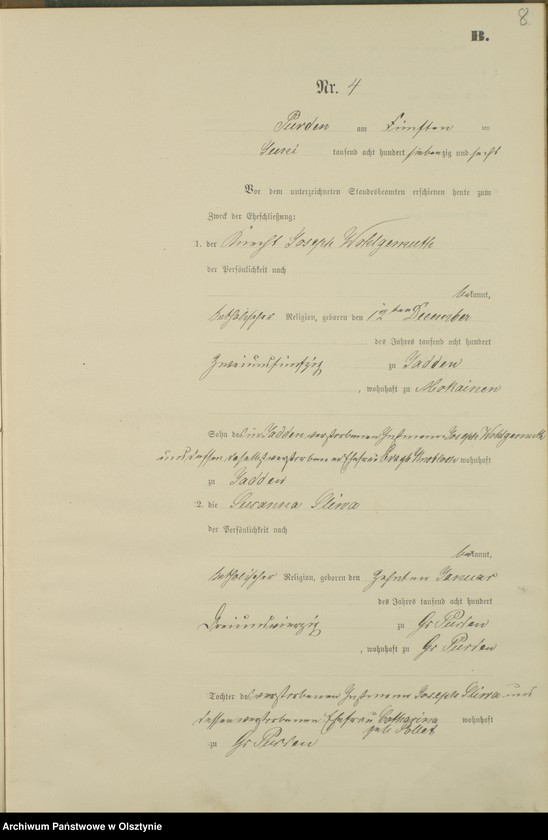 8
B.
Nr. 4
Purden am Fünften ten
Juni tausend acht hundert siebenzig und sechs
Vor dem unterzeichneten Standesbeamten erschienen heute zum
Zweck der Eheschließung:
1. der Knecht Joseph Wohlgemuth
der Persönlichkeit nach
bekannt,
katholischer Religion, geboren den 12ten December
des Jahres tausend acht hundert
zweiundfünfzig zu Jadden
, wohnhaft zu Mokainen
Sohn des in Jadden verstorbenen Instmann Joseph Wohlgemuth
und dessen daselbst verstorbenen Ehefrau wohnhaft
zu Jadden
2. die Susanna Sliwa
der Persönlichkeit nach
bekannt,
katholischer Religion, geboren den Zehnten Januar
des Jahres tausend acht hundert
Dreiundvierzig zu Gr Purden
, wohnhaft zu Gr Purden
Tochter des verstorbenen Instmann Joseph Sliwa und
dessen verstorbenen Ehefrau Catharina wohnhaft
geb
zu Gr Purden
Archiwum Państwowe w Olsztynie